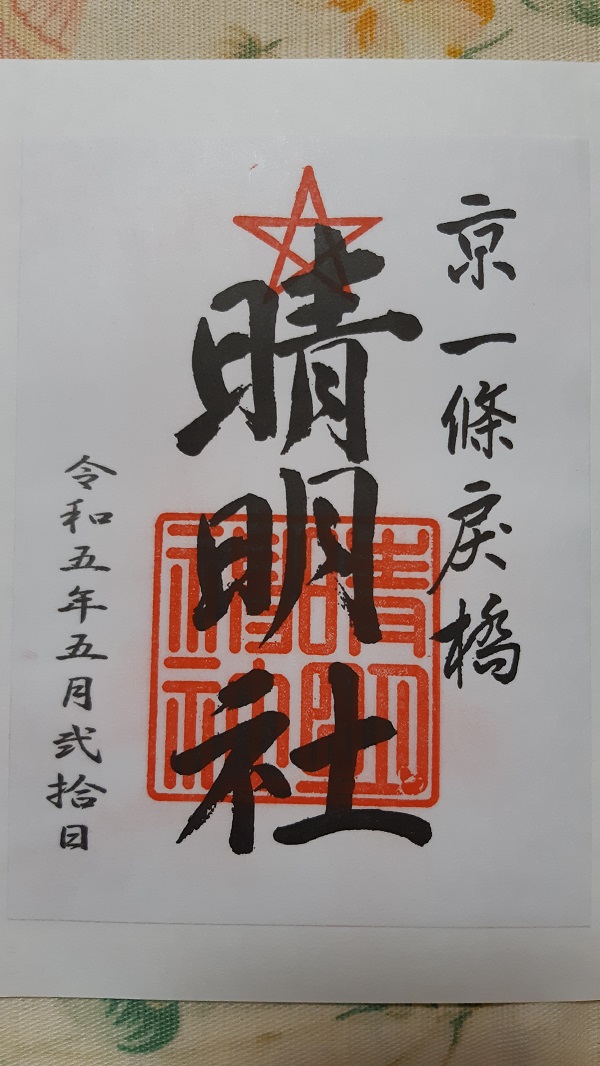 京一條戻橋
晴明社
令和五年五月弐拾日